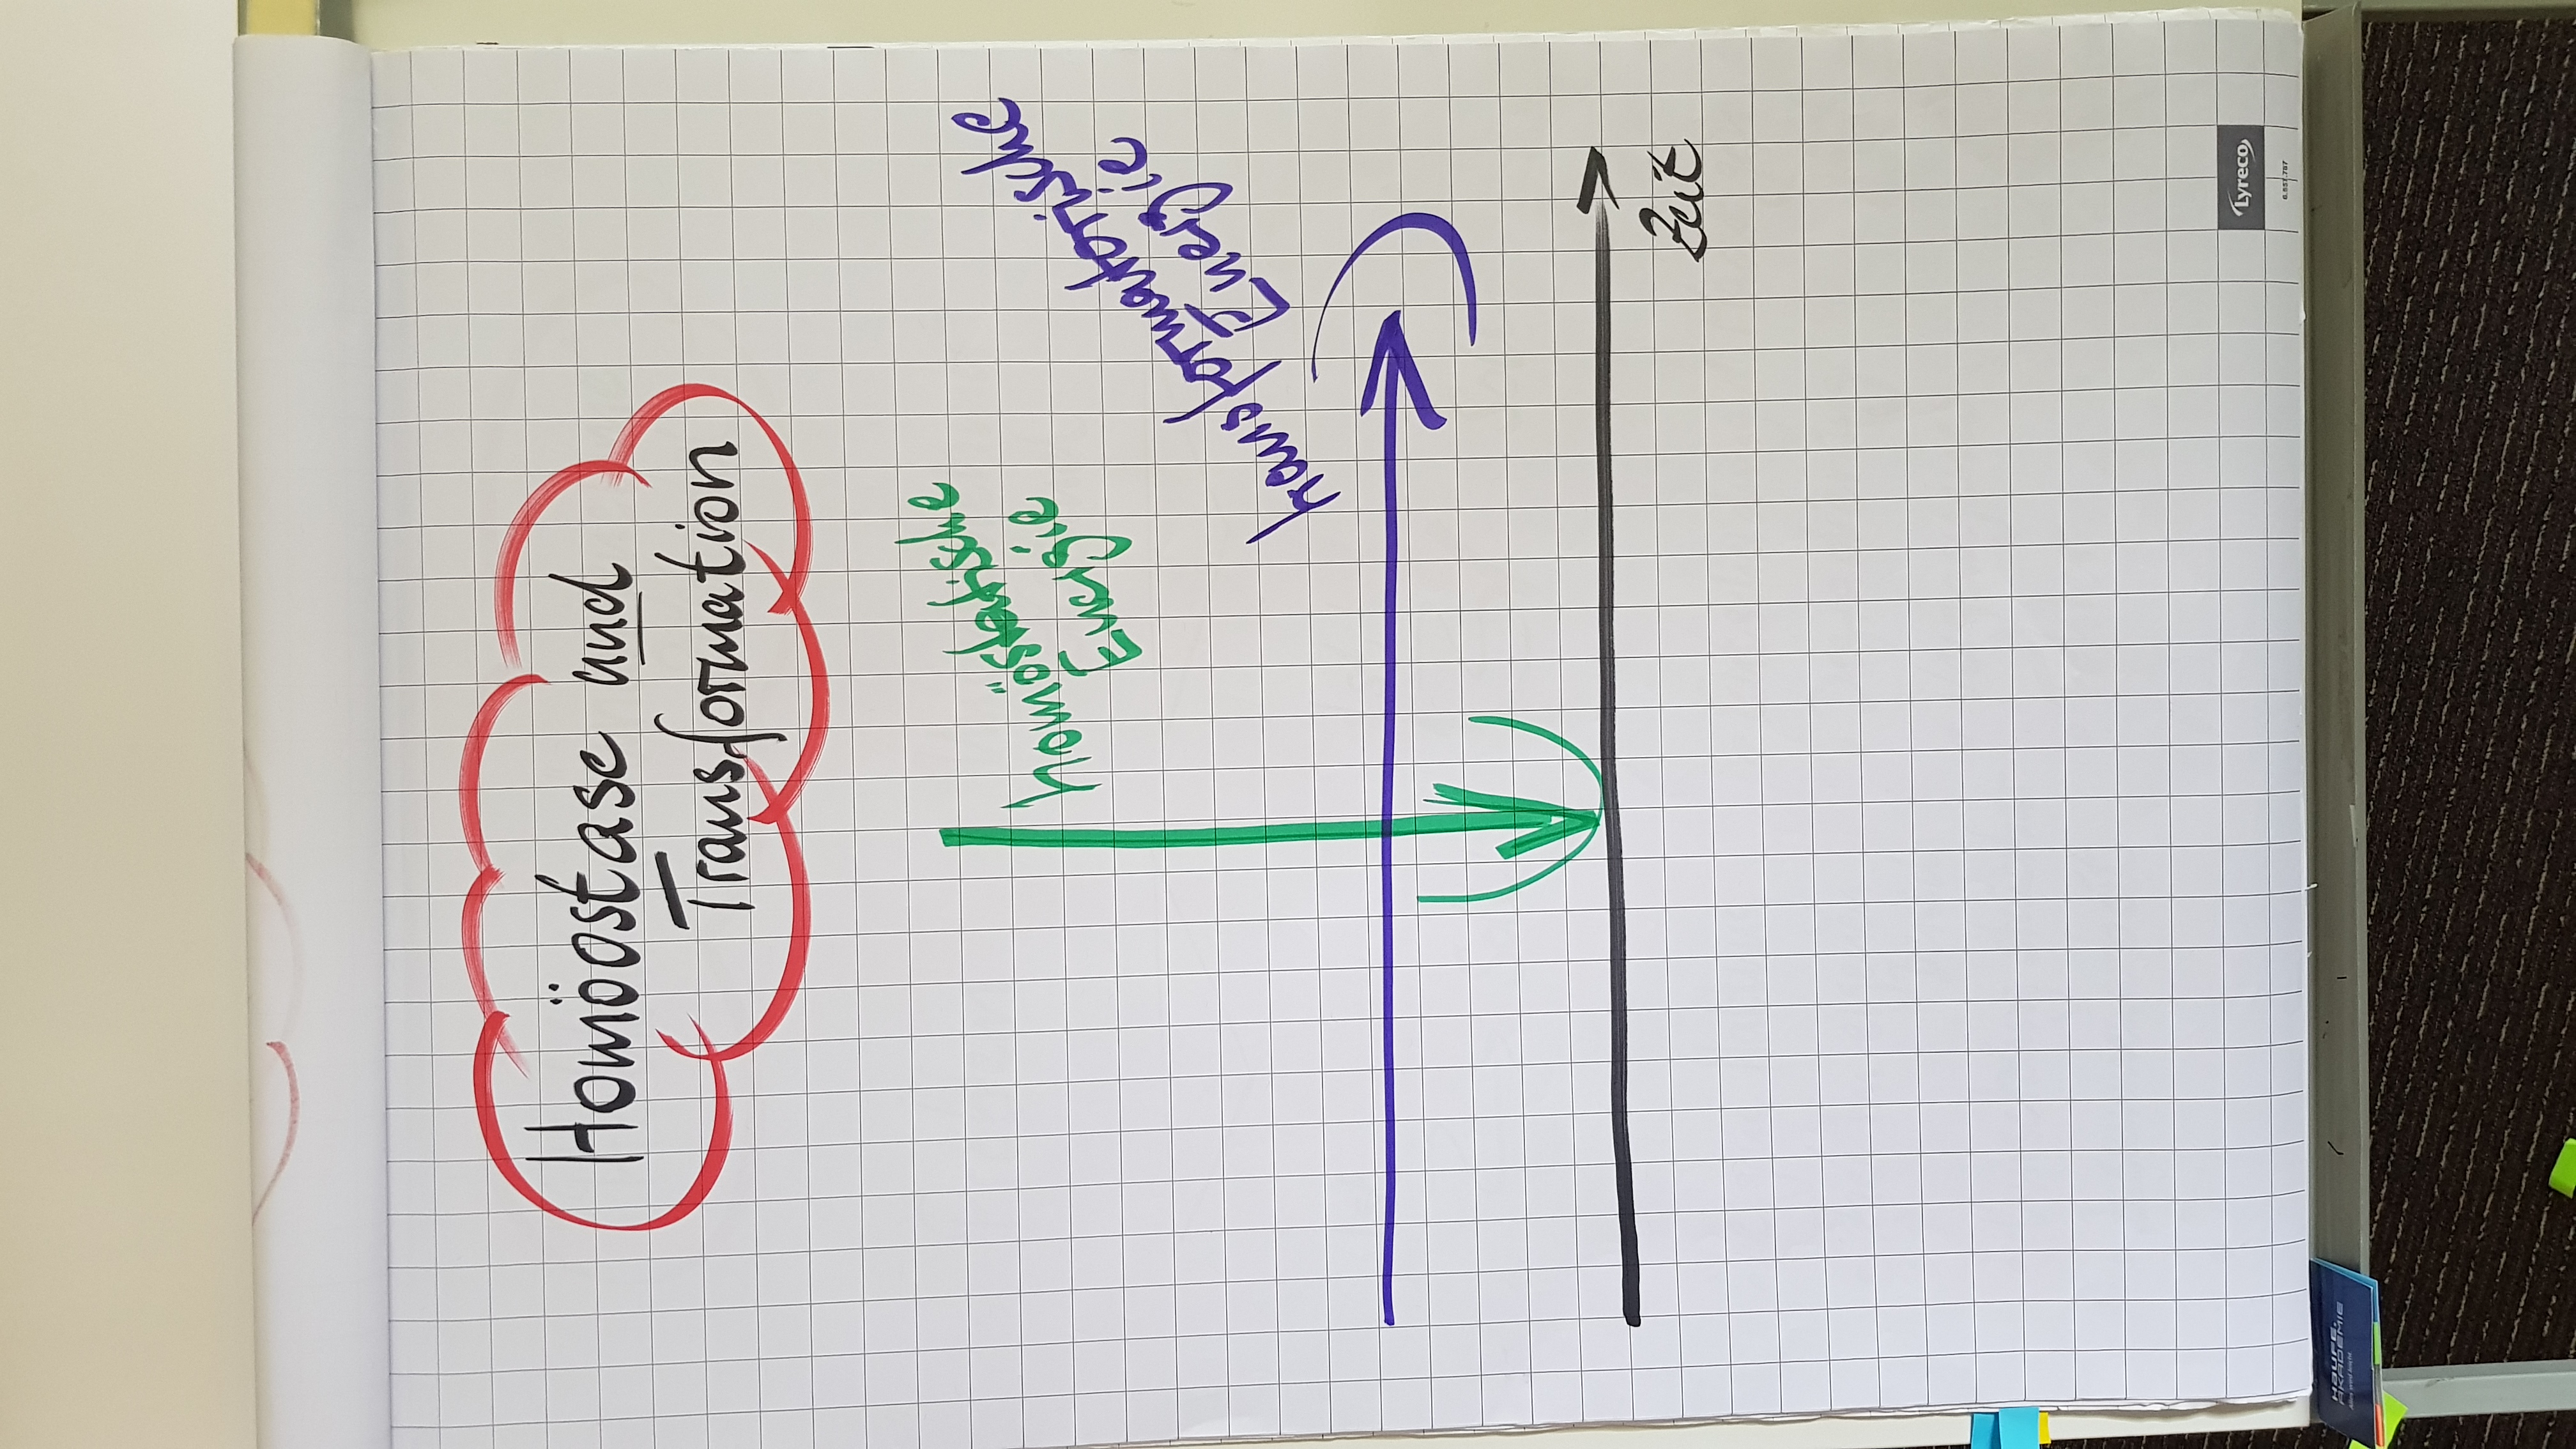 Homöostase und
Transformation
homöstatische
Energie
transformatorische
Energie
Zeit
Lyreco
6.857.787
HAUFE.
AKADEMIE